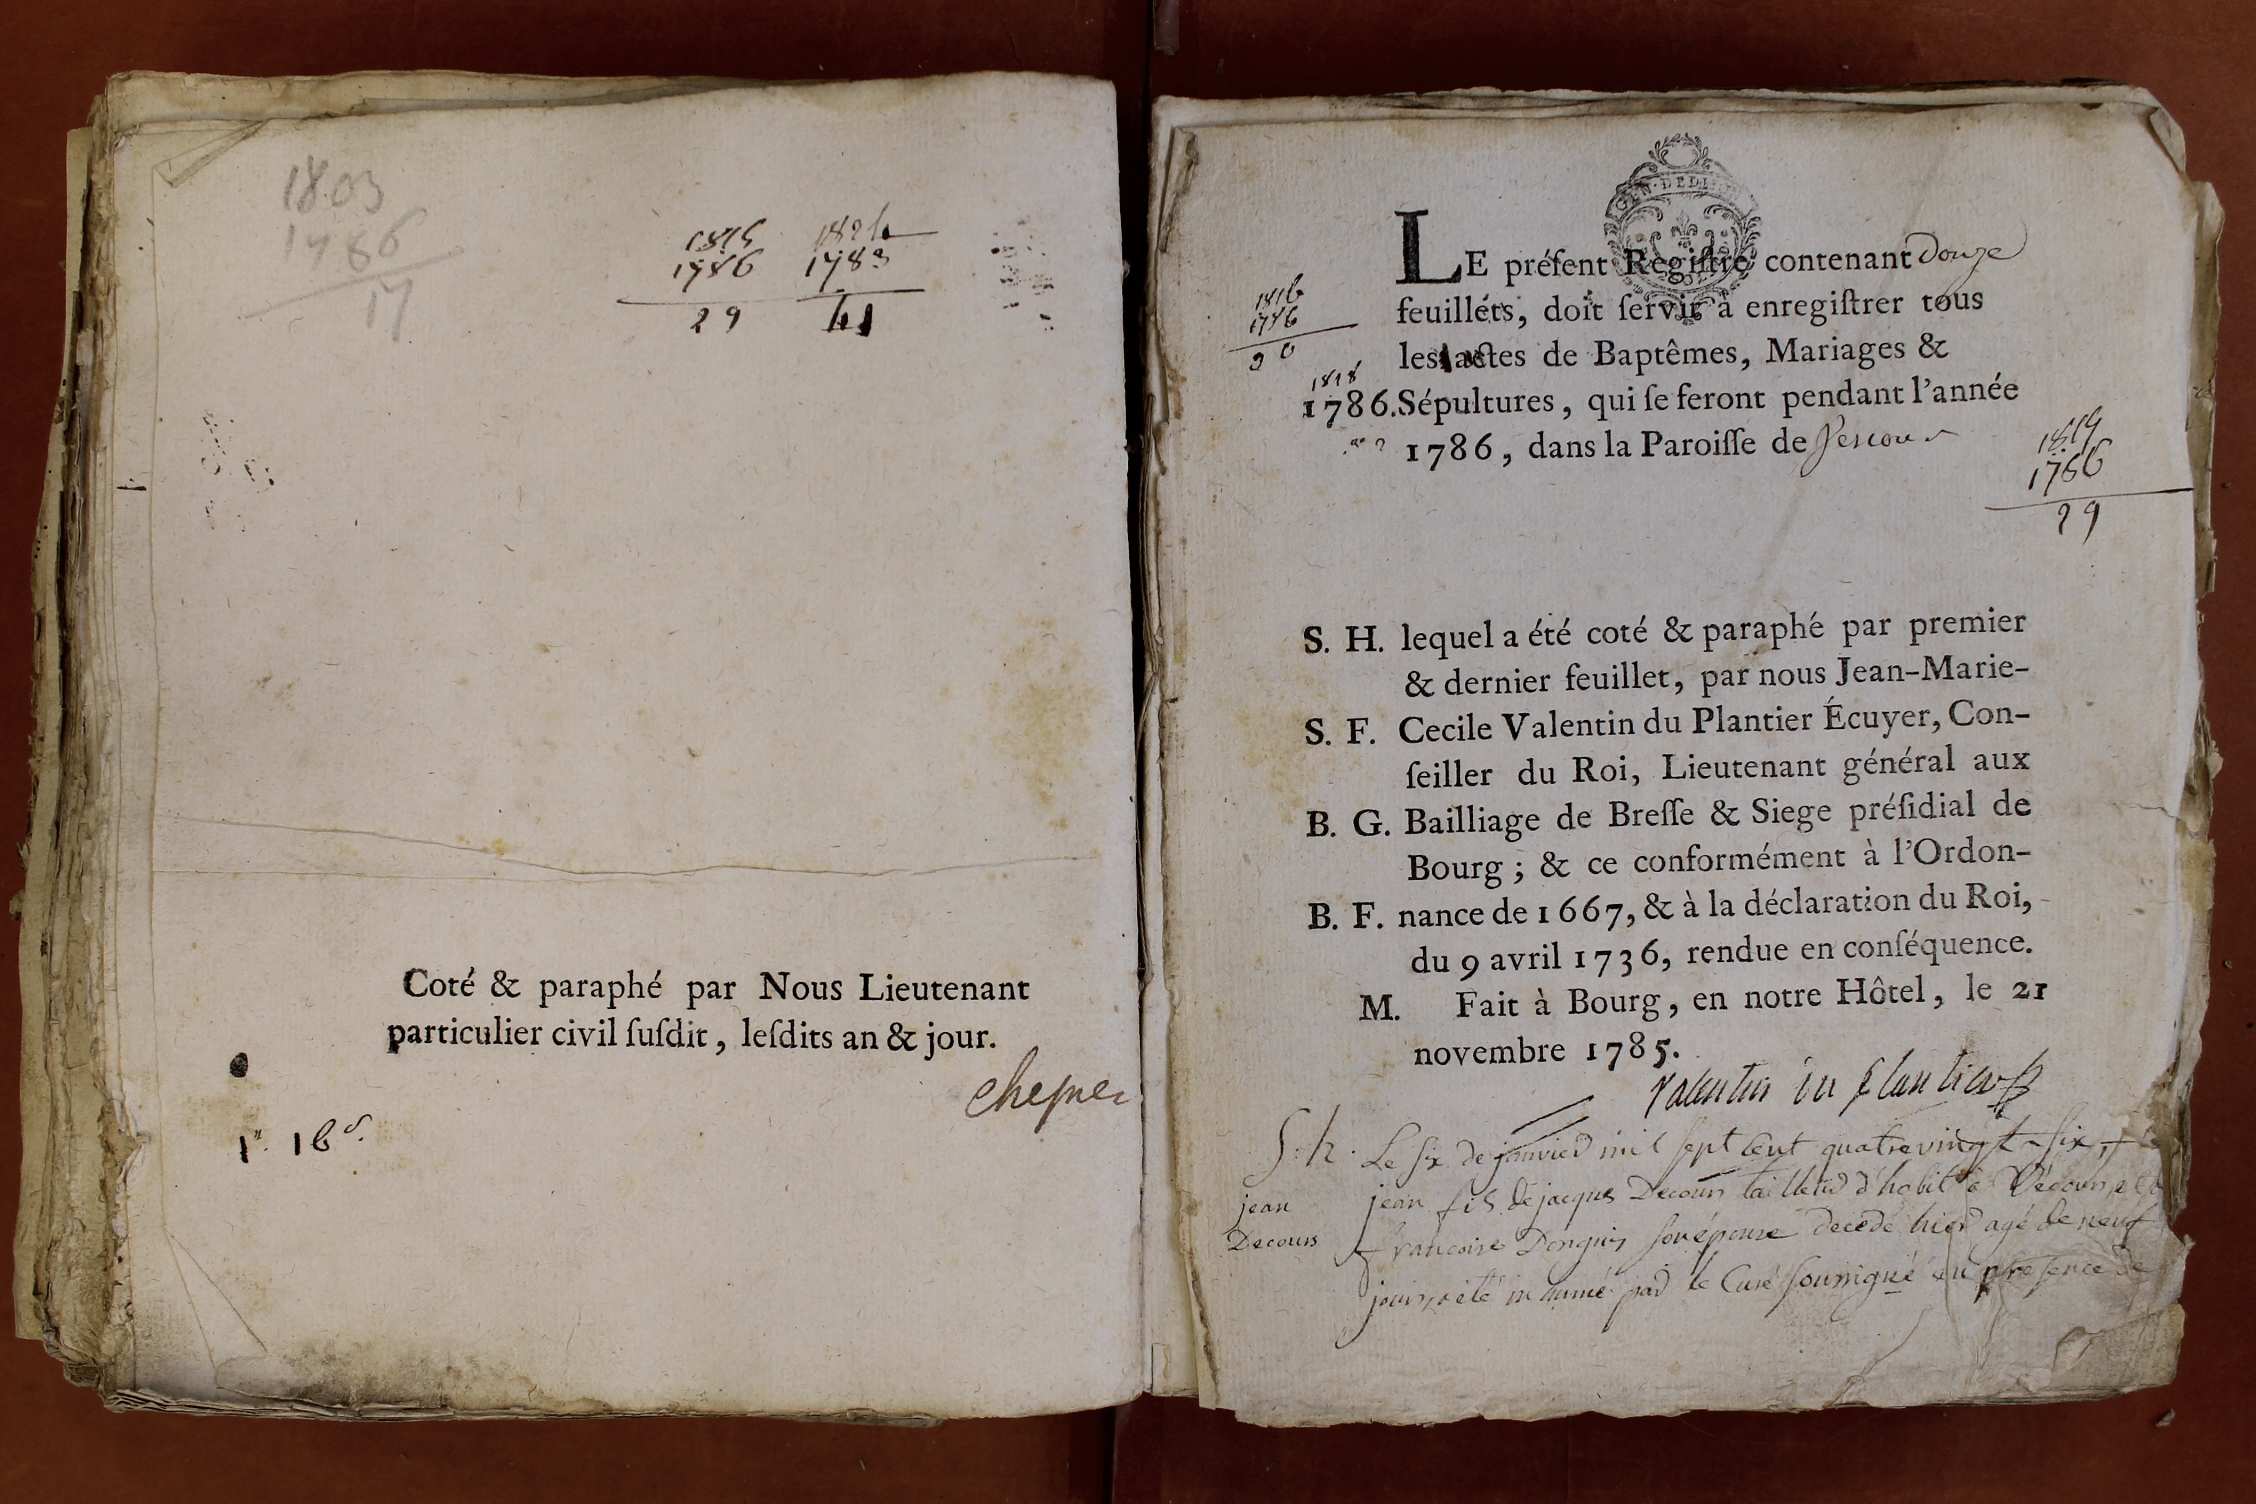 1803
1786
17
1815 1824
1786 1783
29 41
Coté & paraphé par Nous Lieutenant
particulier civil ſuſdit, leſdits an & jour.
1816
1786
30
1818
LE préſent Regiſtre contenant Douze
feuillets, doit ſervir à enregiſtrer tous
les actes de Baptêmes, Mariages &
1786. Sépultures, qui ſe feront pendant l'année
1786, dans la Paroiſſe de
1786
29
S. H. lequel a été coté & paraphé par premier
& dernier feuillet, par nous Jean-Marie-
S. F. Cecile Valentin du Plantier Écuyer, Con-
ſeiller du Roi, Lieutenant général aux
B. G. Bailliage de Breſſe & Siege préſidial de
Bourg ; & ce conformément à l'Ordon-
B. F. nance de 1667, & à la déclaration du Roi,
du 9 avril 1736, rendue en conſéquence.
M. Fait à Bourg, en notre Hôtel, le 21
novembre 1785.
Valentin du Plantier
S. h. Le six de janvier mil sept cent quatrevingt six
jean jean fils de jacques Decours tailleur d'habit à
Decours francoise son épouse decedé hier agé de neuf
jours a été inhumé par le Curé soussigné en presence de